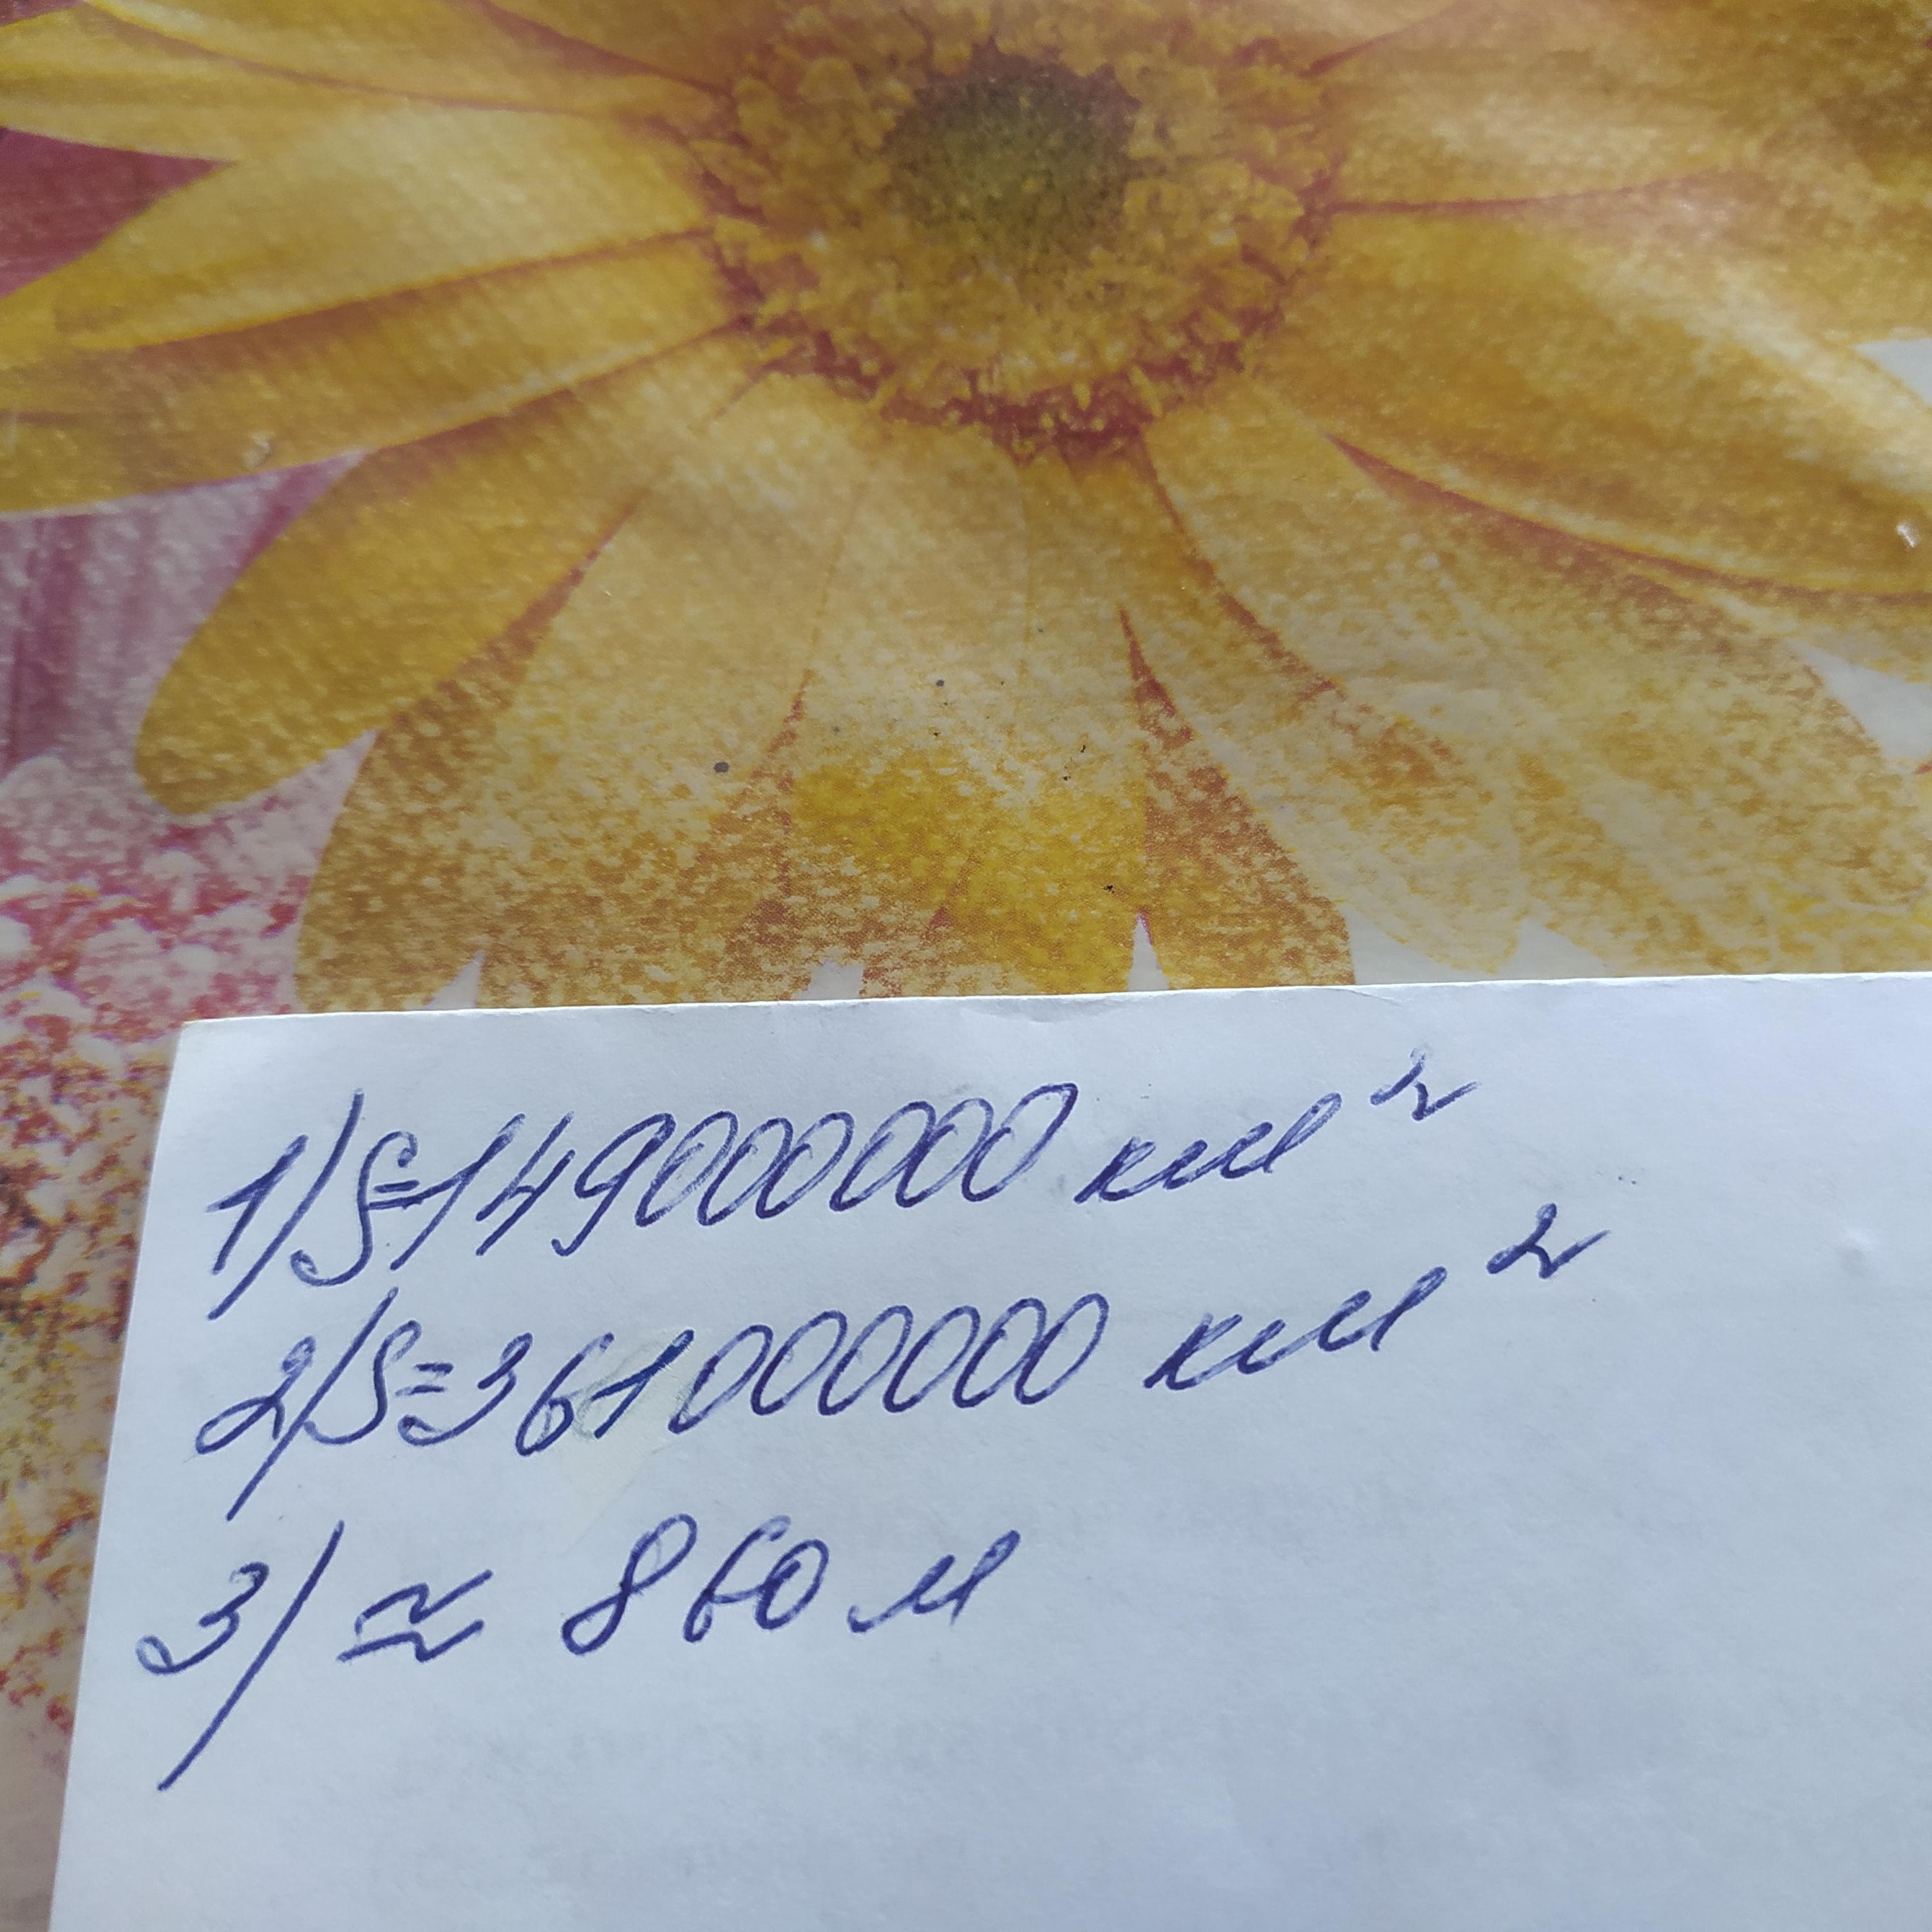 1) S=149000000 км²
2) S=361000000 км²
3) ≃ 860 м